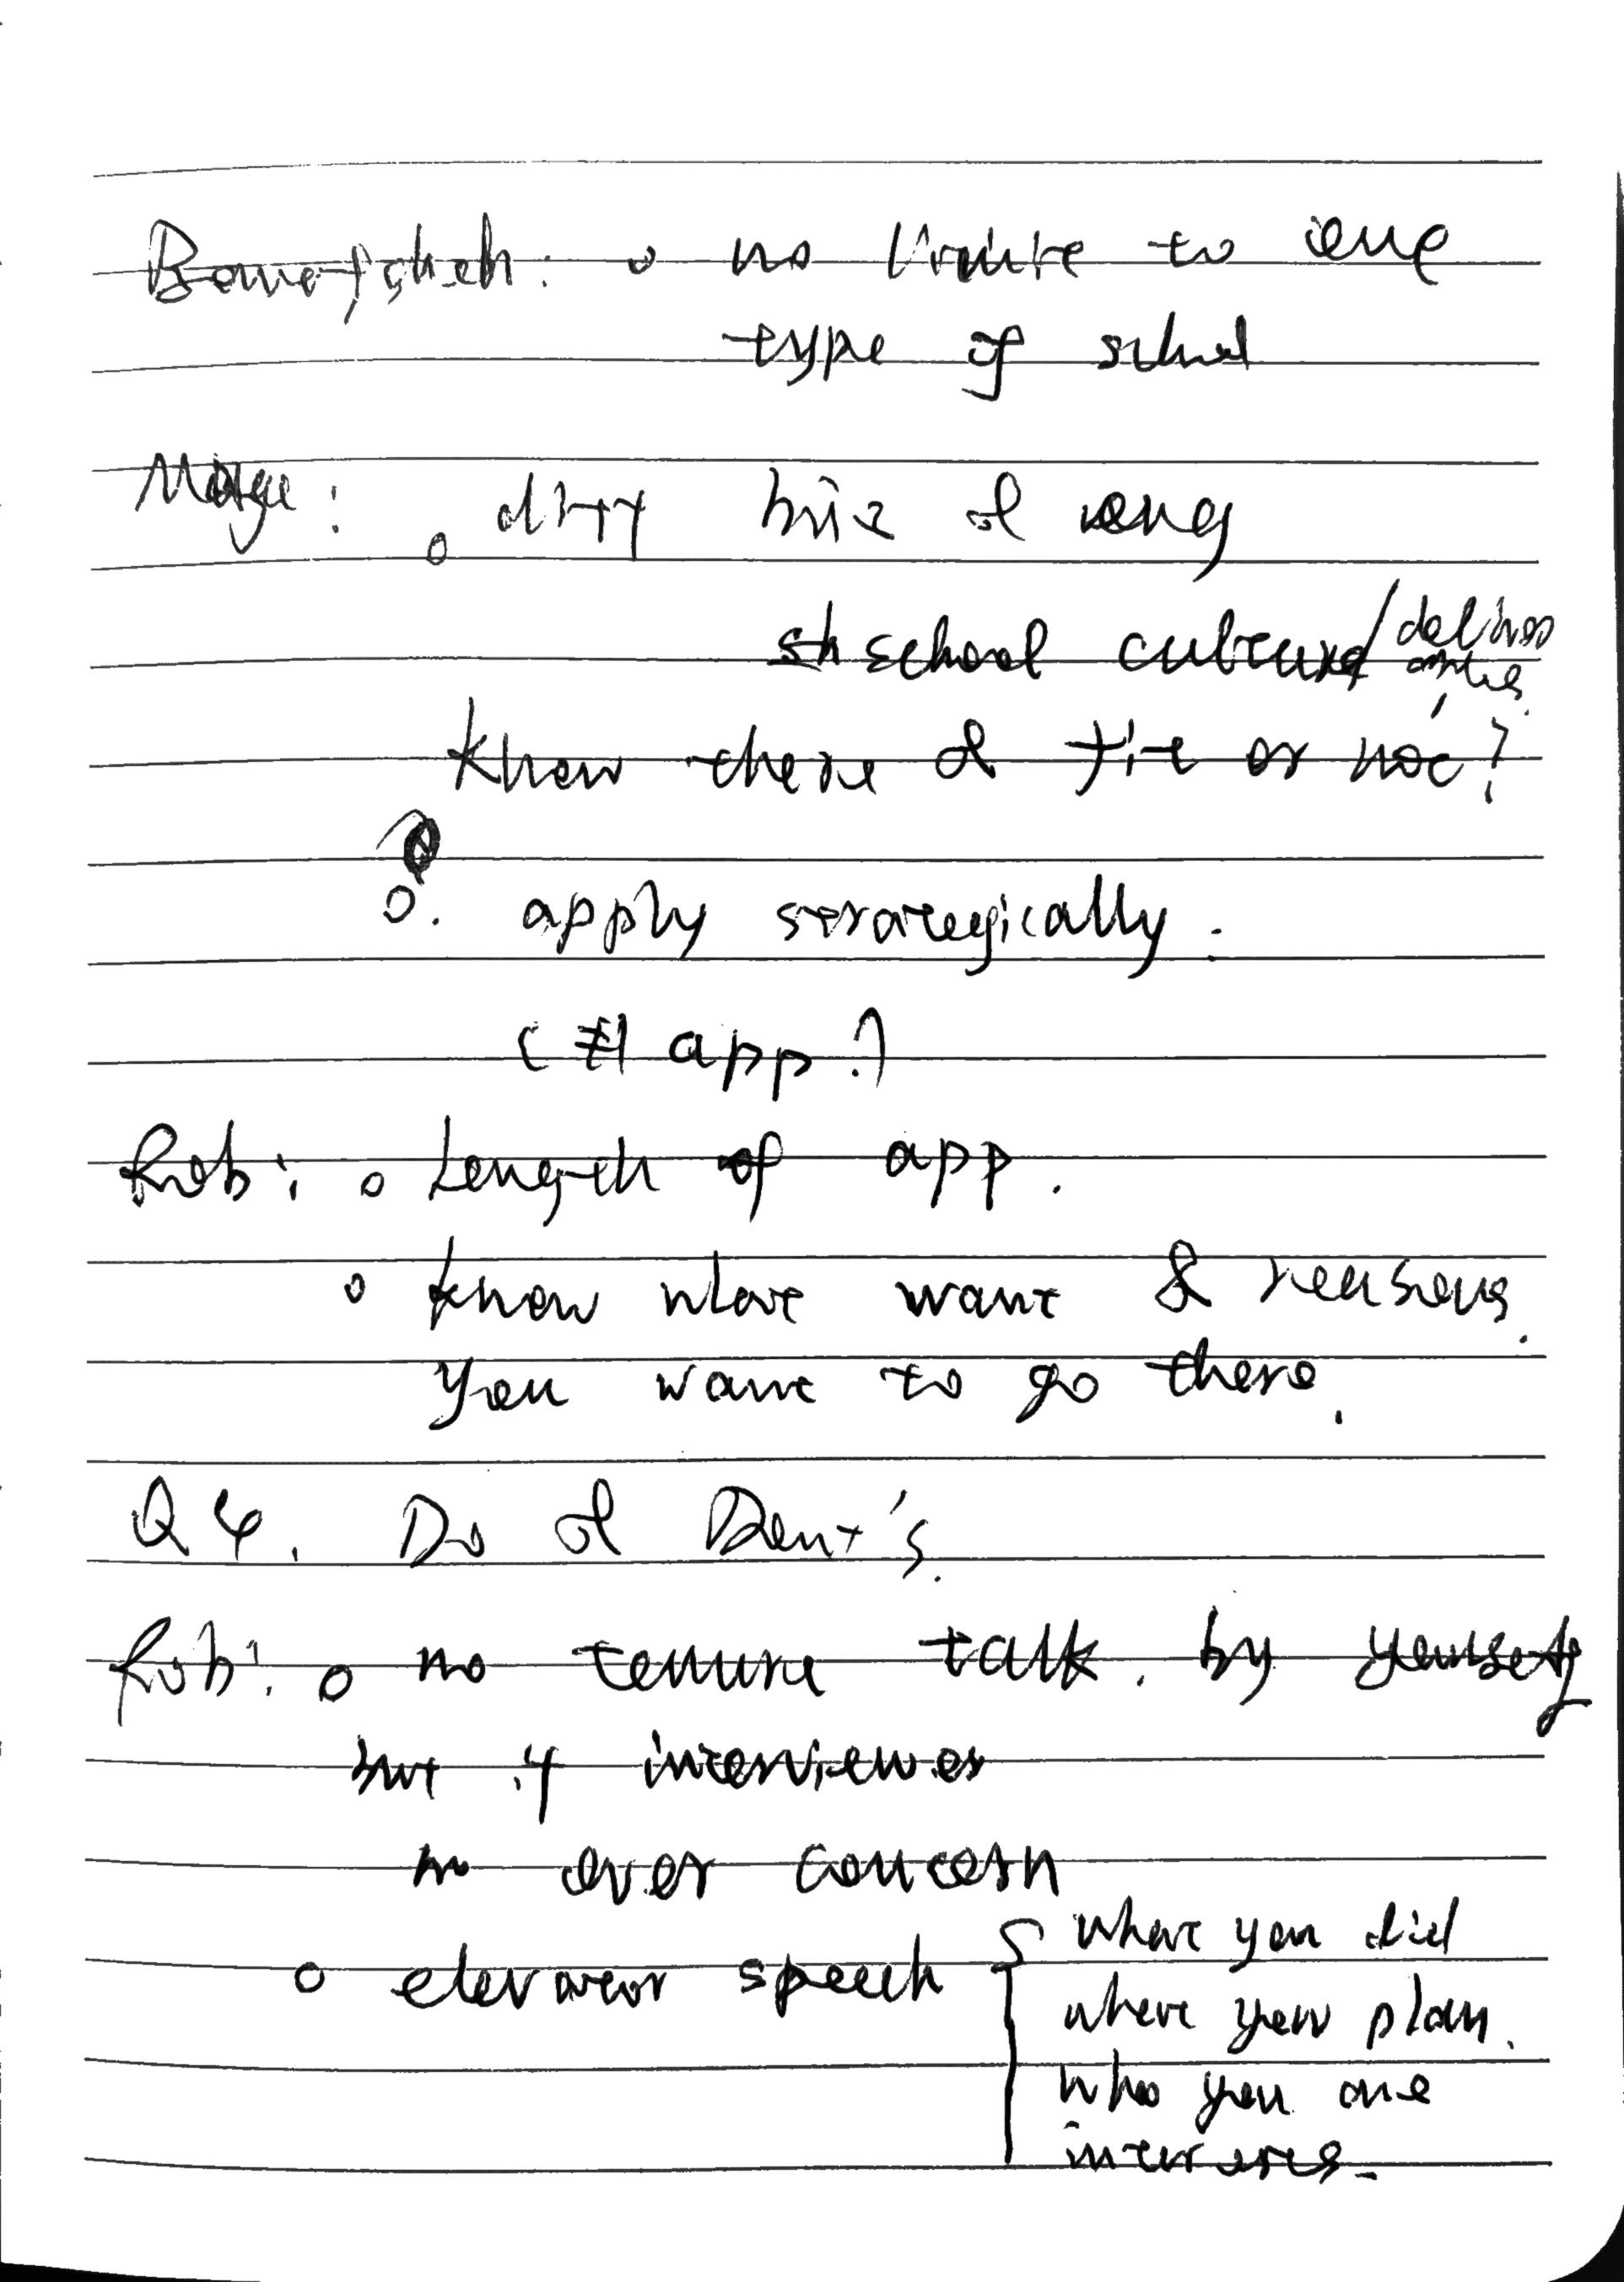 no limite to one
type of school
: diff
school culture/
know there & fit or not?
apply strategically.
(# app?)
Rob: Length of app.
know what want & reasons.
you want to go there.
Q4. Do & Dont's.
Rob: no tenure talk. by yourself
but if interviewer
no over concern
elevator speech { what you did
where you plan.
who you are
interests.